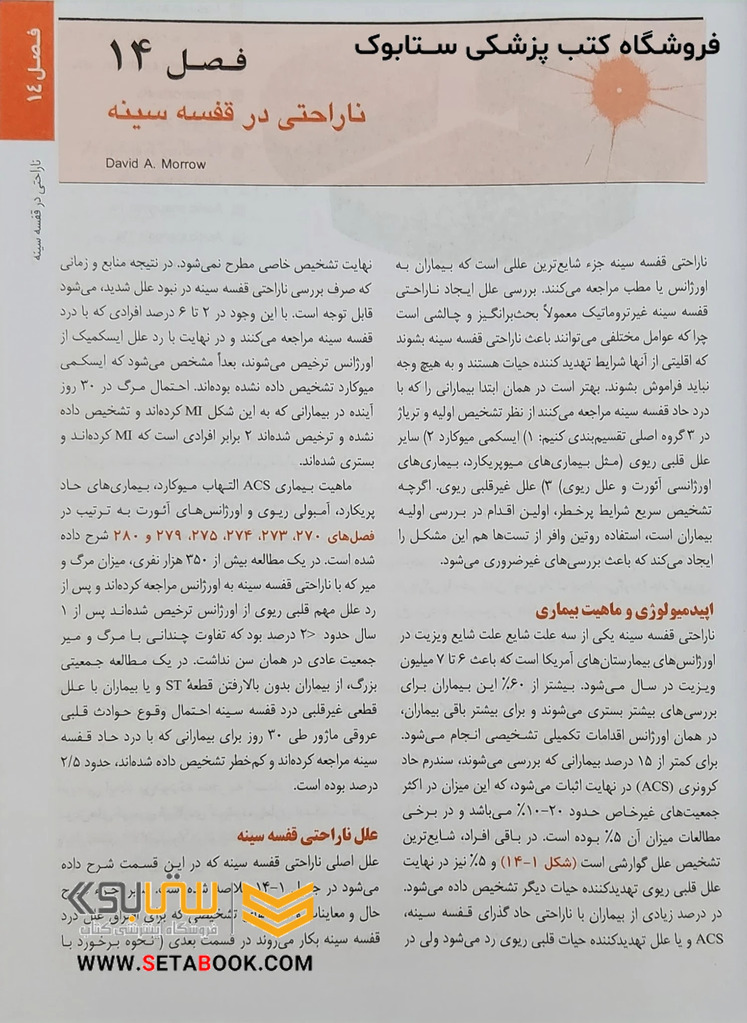 فروشگاه کتب پزشکی ستابوک
فصل ۱۴
فصل ۱۴
ناراحتی در قفسه سینه
David A. Morrow
ناراحتی در قفسه سینه
ناراحتی قفسه سینه جزء شایع‌ترین عللی است که بیماران به
اورژانس یا مطب مراجعه می‌کنند. بررسی علل ایجاد ناراحتی
قفسه سینه غیرتروماتیک معمولاً بحث‌برانگیز و چالشی است
چرا که عوامل مختلفی می‌توانند باعث ناراحتی قفسه سینه بشوند
که اقلیتی از آنها شرایط تهدید کننده حیات هستند و به هیچ وجه
نباید فراموش بشوند. بهتر است در همان ابتدا بیمارانی را که با
درد حاد قفسه سینه مراجعه می‌کنند از نظر تشخیص اولیه و تریاژ
در ۳ گروه اصلی تقسیم‌بندی کنیم: ۱) ایسکمی میوکارد ۲) سایر
علل قلبی ریوی (مثل بیماری‌های میوپریکارد، بیماری‌های
اورژانسی آئورت و علل ریوی) ۳) علل غیرقلبی ریوی. اگرچه
تشخیص سریع شرایط پرخطر، اولین اقدام در بررسی اولیه
بیماران است، استفاده روتین وافر از تست‌ها هم این مشکل را
ایجاد می‌کند که باعث بررسی‌های غیرضروری می‌شود.
اپیدمیولوژی و ماهیت بیماری
ناراحتی قفسه سینه یکی از سه علت شایع علت شایع ویزیت در
اورژانس‌های بیمارستان‌های آمریکا است که باعث ۶ تا ۷ میلیون
ویزیت در سال می‌شود. بیشتر از ۶۰٪ این بیماران برای
بررسی‌های بیشتر بستری می‌شوند و برای بیشتر باقی بیماران،
در همان اورژانس اقدامات تکمیلی تشخیصی انجام می‌شود.
برای کمتر از ۱۵ درصد بیمارانی که بررسی می‌شوند، سندرم حاد
کرونری (ACS) در نهایت اثبات می‌شود، که این میزان در اکثر
جمعیت‌های غیرخاص حدود ۲۰-۱۰٪ می‌باشد و در برخی
مطالعات میزان آن ۵٪ بوده است. در باقی افراد، شایع‌ترین
تشخیص علل گوارشی است (شکل ۱-۱۴) و ۵٪ نیز در نهایت
علل قلبی ریوی تهدیدکننده حیات دیگر تشخیص داده می‌شود.
در درصد زیادی از بیماران با ناراحتی حاد گذرای قفسه سینه،
ACS و یا علل تهدیدکننده حیات قلبی ریوی رد می‌شود ولی در
نهایت تشخیص خاصی مطرح نمی‌شود. در نتیجه منابع و زمانی
که صرف بررسی ناراحتی قفسه سینه در نبود علل شدید، می‌شود
قابل توجه است. با این وجود در ۲ تا ۶ درصد افرادی که با درد
قفسه سینه مراجعه می‌کنند و در نهایت با رد علل ایسکمیک از
اورژانس ترخیص می‌شوند، بعداً مشخص می‌شود که ایسکمی
میوکارد تشخیص داده نشده بوده‌اند. احتمال مرگ در ۳۰ روز
آینده در بیمارانی که به این شکل MI کرده‌اند و تشخیص داده
نشده و ترخیص شده‌اند ۲ برابر افرادی است که MI کرده‌اند و
بستری شده‌اند.
ماهیت بیماری ACS التهاب میوکارد، بیماری‌های حاد
پریکارد، آمبولی ریوی و اورژانس‌های آئورت به ترتیب در
فصل‌های ۲۷۰، ۲۷۳، ۲۷۴، ۲۷۵، ۲۷۹ و ۲۸۰ شرح داده
شده است. در یک مطالعه بیش از ۳۵۰ هزار نفری، میزان مرگ و
میر که با ناراحتی قفسه سینه به اورژانس مراجعه کرده‌اند و پس از
رد علل مهم قلبی ریوی از اورژانس ترخیص شده‌اند پس از ۱
سال حدود <۲ درصد بود که تفاوت چندانی با مرگ و میر
جمعیت عادی در همان سن نداشت. در یک مطالعه جمعیتی
بزرگ، از بیماران بدون بالارفتن قطعهٔ ST و یا بیماران با علل
قطعی غیرقلبی درد قفسه سینه احتمال وقوع حوادث قلبی
عروقی ماژور طی ۳۰ روز برای بیمارانی که با درد حاد قفسه
سینه مراجعه کرده‌اند و کم‌خطر تشخیص داده شده‌اند، حدود ۲/۵
درصد بوده است.
علل ناراحتی قفسه سینه
علل اصلی ناراحتی قفسه سینه که در این قسمت شرح داده
می‌شود در ۱-۱۴
حال و معاینات تشخیصی که برای علل درد
قفسه سینه بکار می‌روند در قسمت بعدی (نحوه برخورد با
ستابوک
فروشگاه اینترنتی کتاب
WWW.SETABOOK.COM